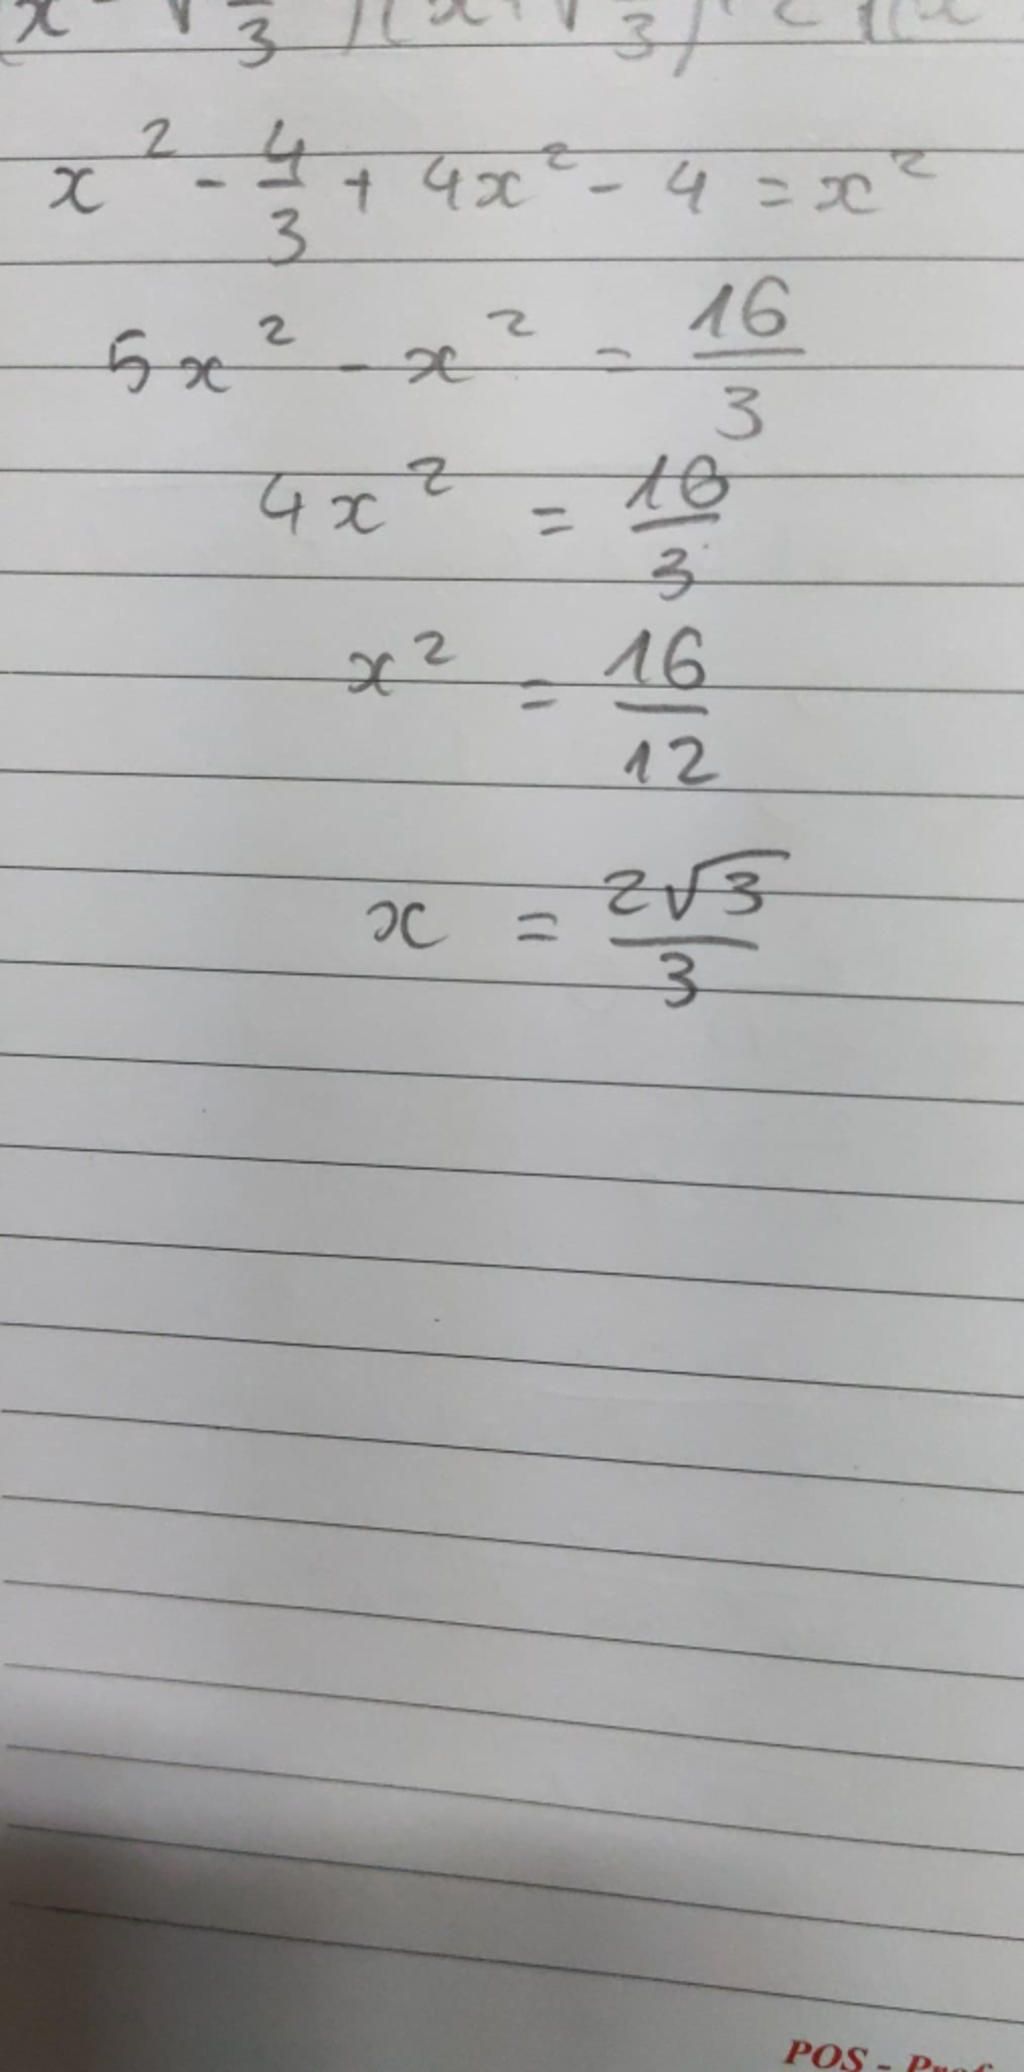 x² - 4/3 + 4x² - 4 = x²
5x² - x² = 16/3
4x² = 16/3
x² = 16/12
x = 2√3/3
POS -